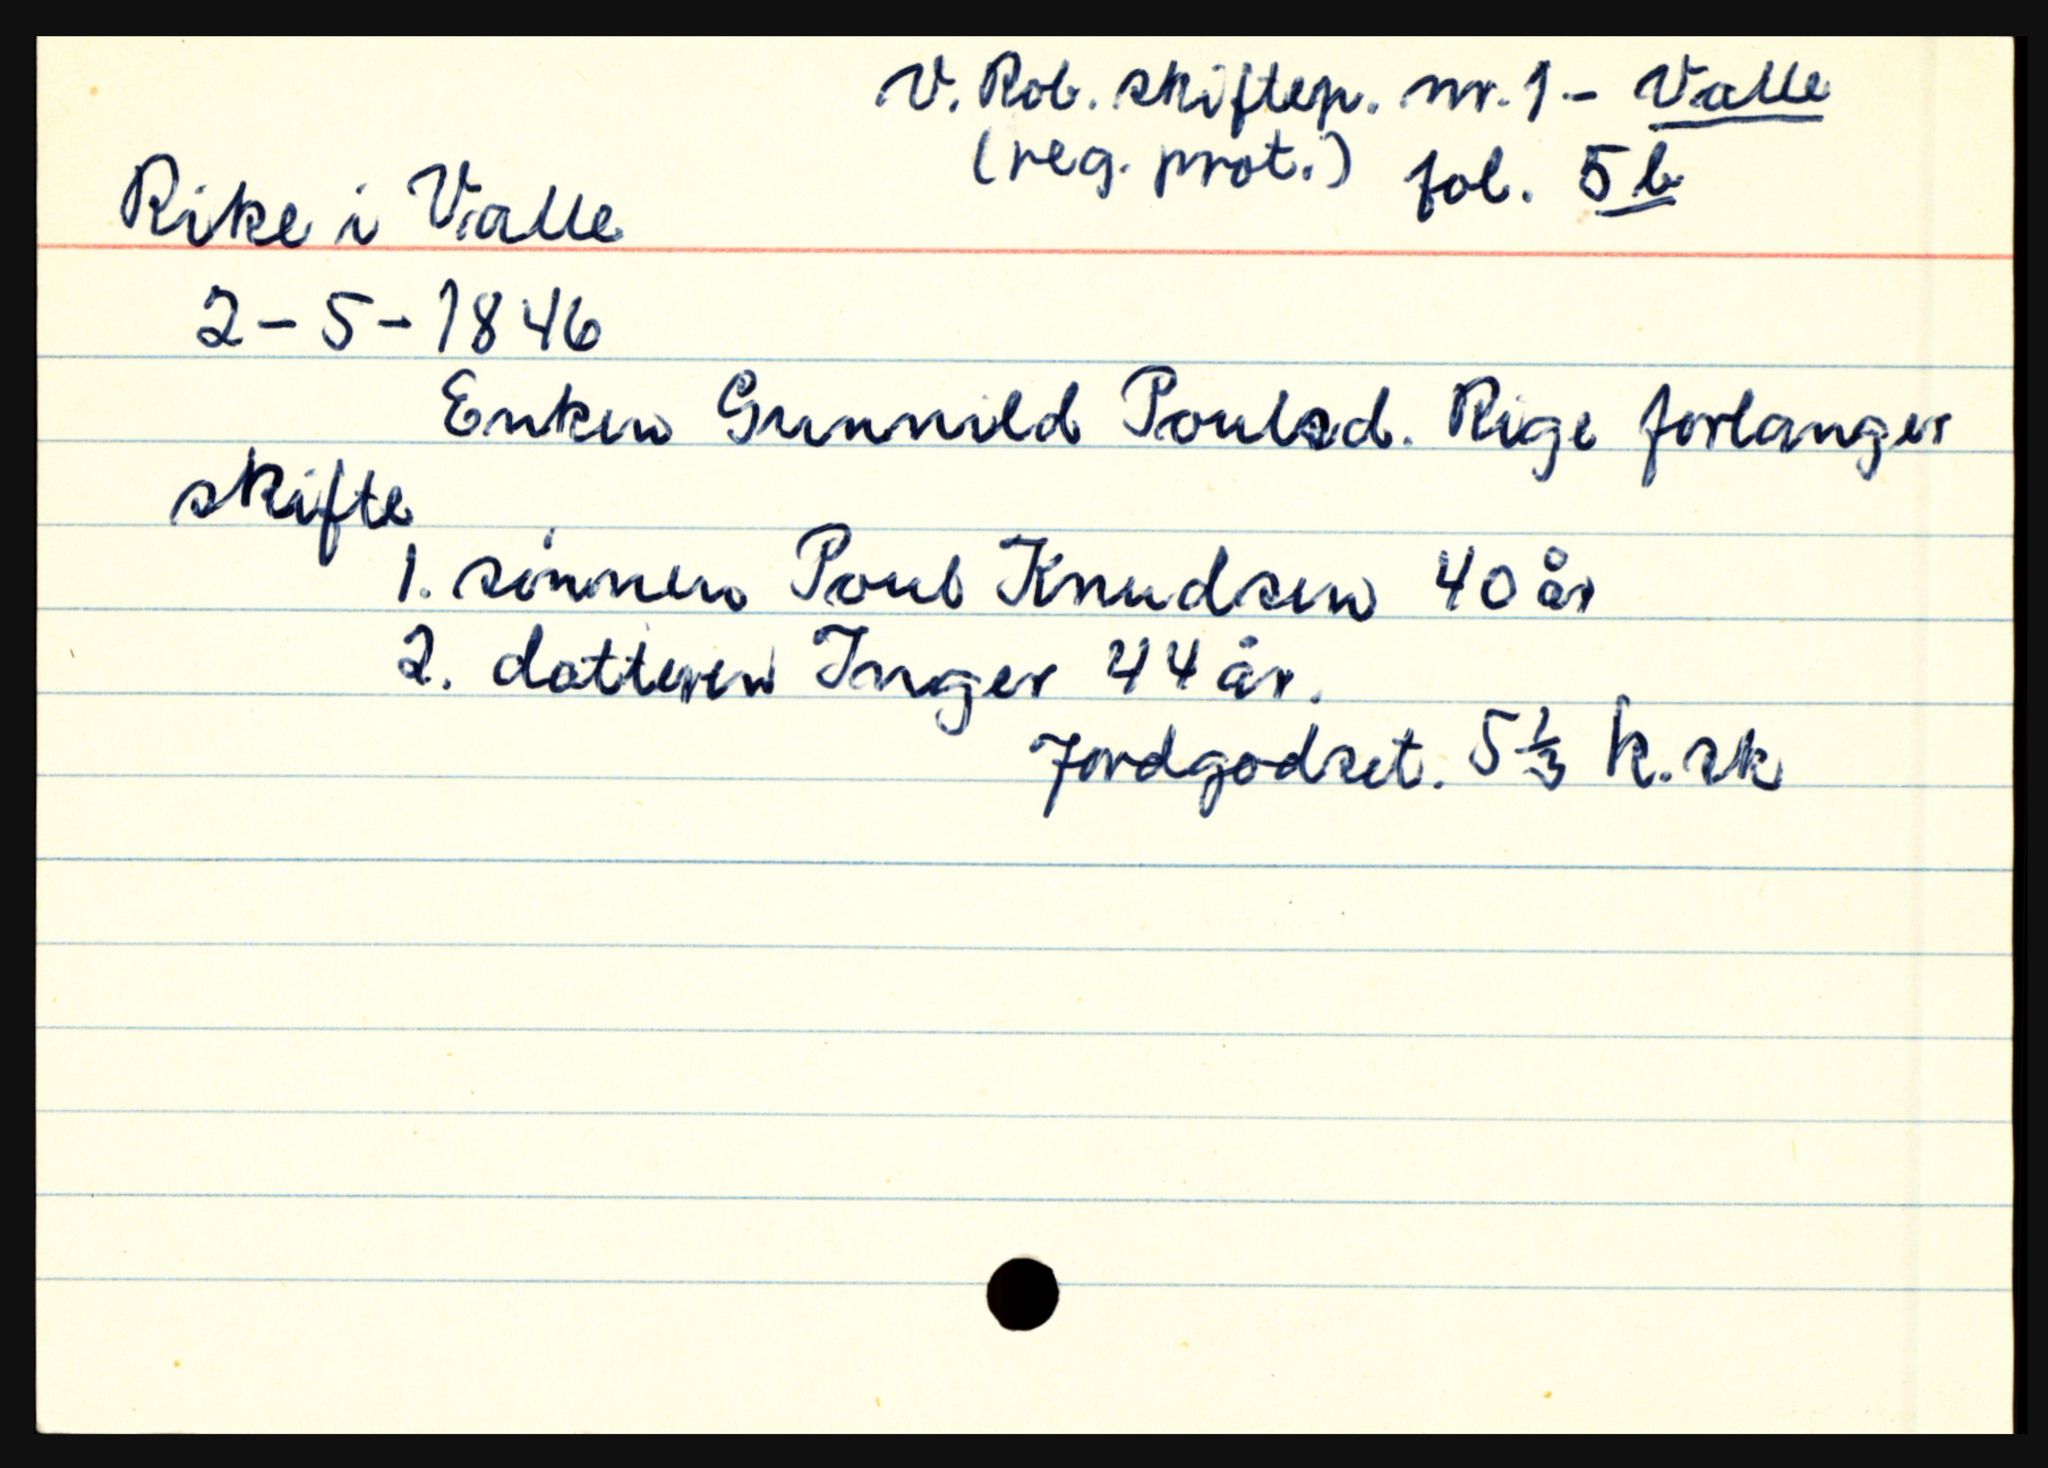 V. Rob. skiftep. nr. 1 - Valle
(reg. prot.) fol. 5b
Rike i Valle
2-5-1846
Enken Gunnild Poulsd. Rige forlanger
skifte
1. sönnen Poul Knudsen 40 år
2. datteren Inger 44 år.
Jordgodset. 5⅓ k. sk